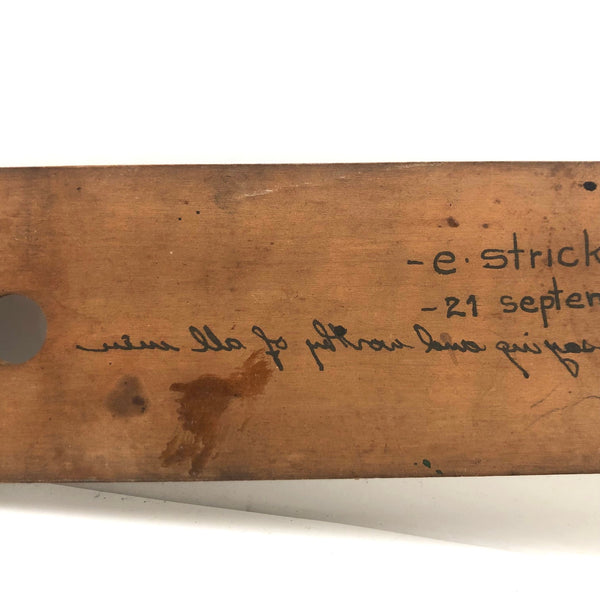 -e. strick
-21 septem
saying and worthy of all men